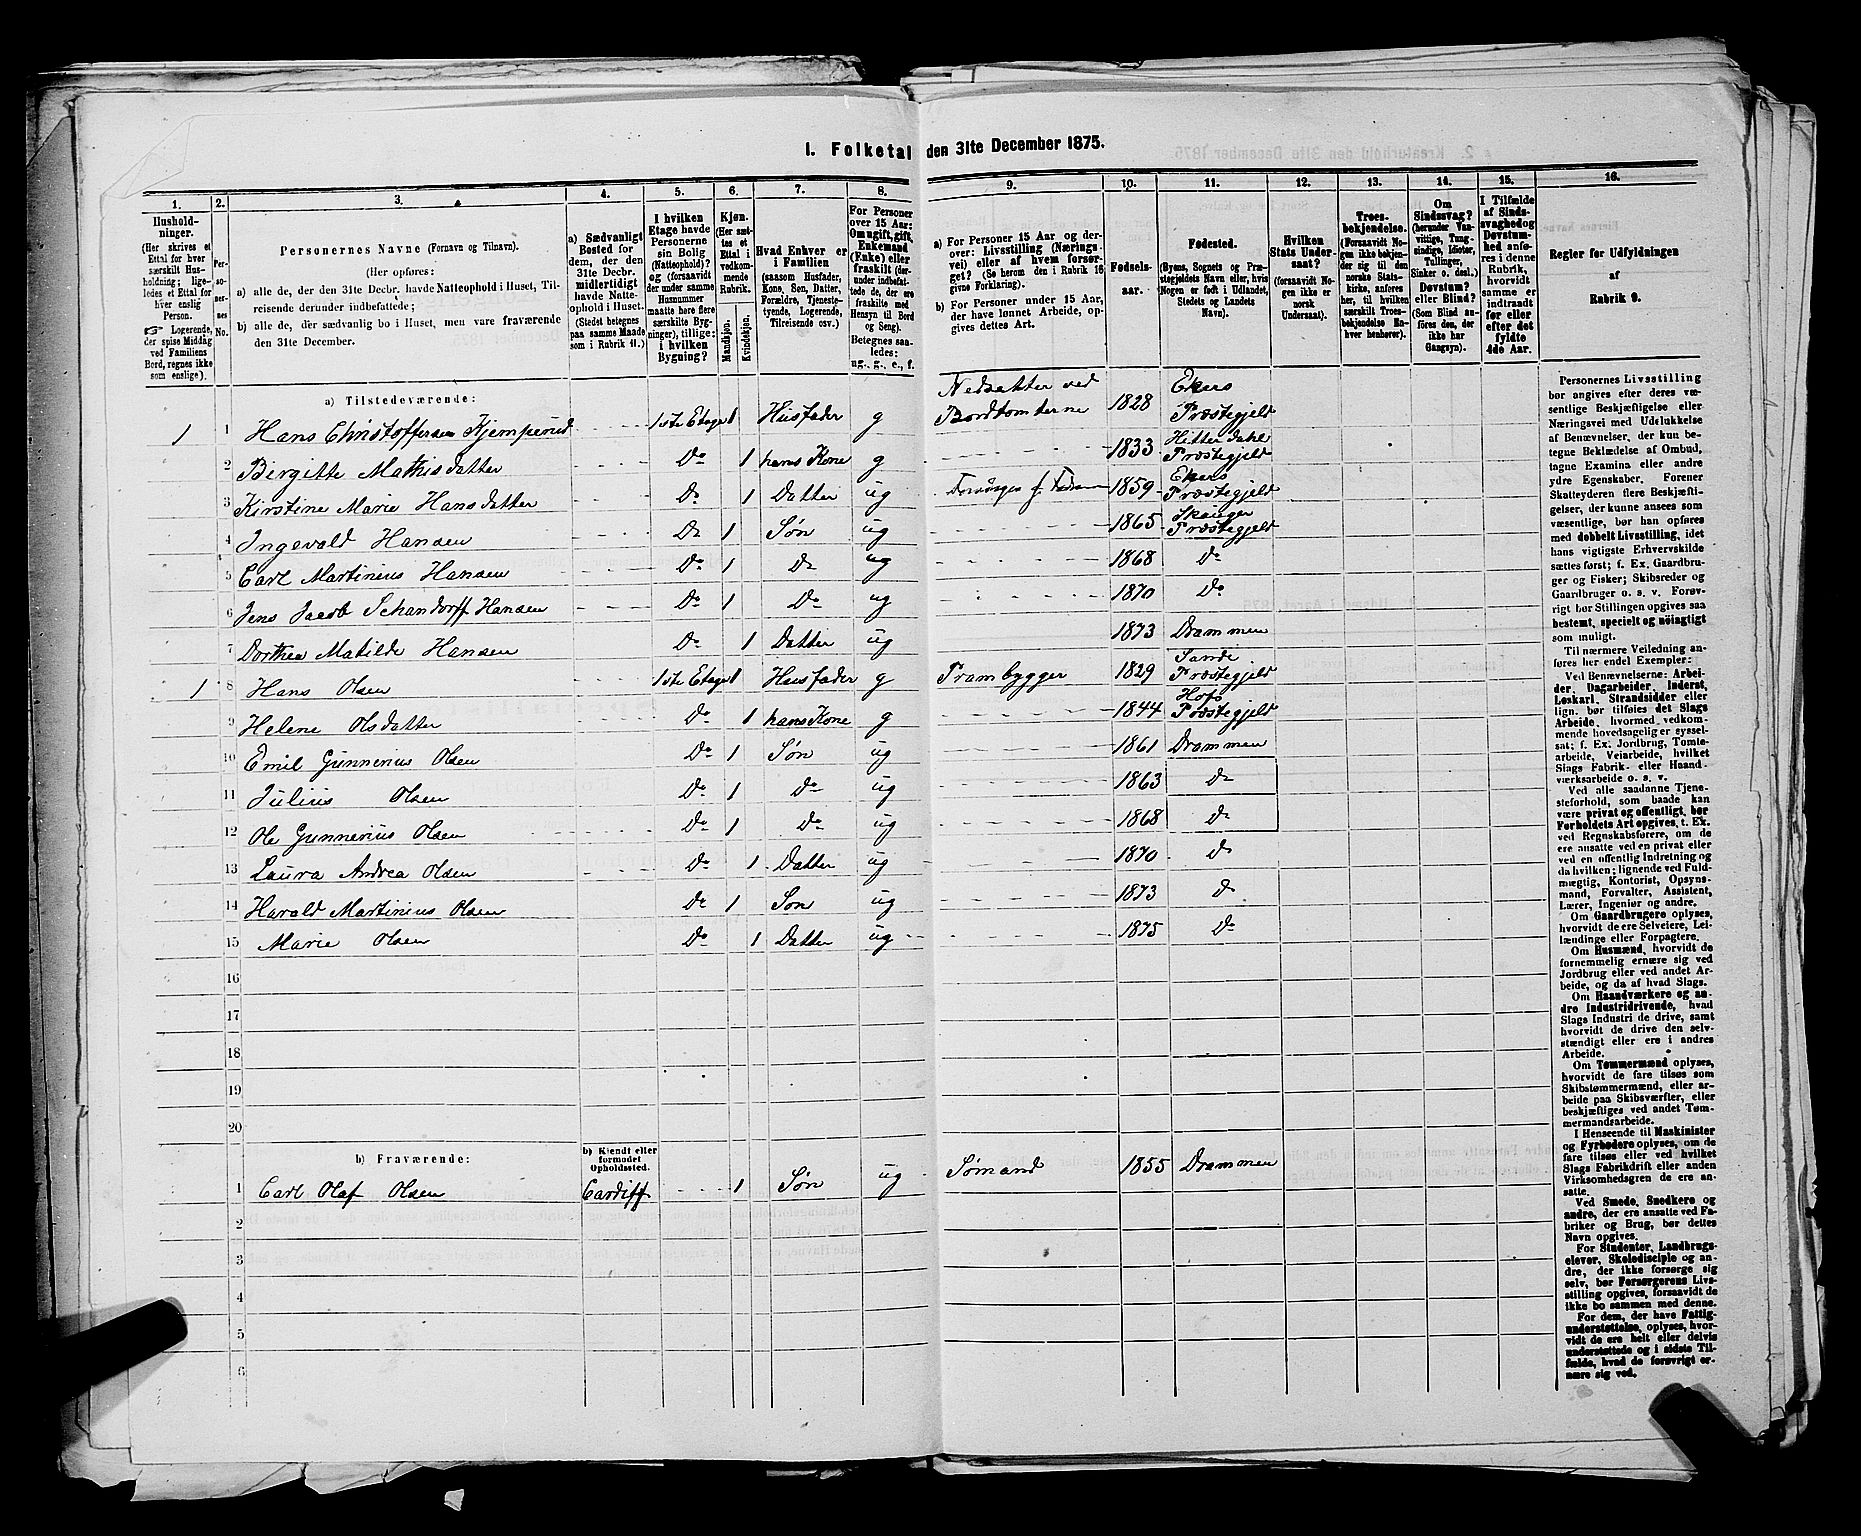 I. Folketal den 31te December 1875.
1. 2. 3. 4. 5. 6. 7. 8. 9. 10. 11. 12. 13. 14. 15. 16.
Hushold-
ninger.
(Her skrives et
Ettal for hver
særskilt Hus-
holdning; lige-
ledes et Ettal for
hver enslig
Person.
Logerende,
der spise Middag
ved Familiens
Bord, regnes ikke
som enslige).
Per-
so-
ner-
nes
No.
Personernes Navne (Fornavn og Tilnavn).
(Her opføres:
a) alle de, der den 31te Decbr. havde Natteophold i Huset, Til-
reisende derunder indbefattede;
b) alle de, der sædvanlig bo i Huset, men vare fraværende
den 31te December.
a) Sædvanligt
Bosted for
dem, der den
31te Decbr.
midlertidigt
havde Natte-
ophold i Huset.
(Stedet betegnes
paa samme Maade
som i Rubrik 11.)
I hvilken
Etage havde
Personerne
sin Bolig
(Natteophold)?
og (forsaavidt
der under samme
Husnummer
maatte høre flere
særskilte Byg-
ninger), tillige:
i hvilken
Bygning?
Kjøn.
(Her sæt-
tes et
Ettal i
vedkom-
mende
Rubrik.
Mandkjøn.
Kvindekjøn.
Hvad Enhver er
i Familien
(saasom Husfader,
Kone, Søn, Datter,
Forældre, Tjeneste-
tyende, Logerende,
Tilreisende osv.)
For Personer
over 15 Aar:
Om ugift, gift,
Enkemand
(Enke) eller
fraskilt (der-
under indbefat-
tede de, der ere
fraskilte med
Hensyn til Bord
og Seng).
Betegnes saa-
ledes:
ug., g., e., f.
a) For Personer 15 Aar og der-
over: Livsstilling (Nærings-
vei) eller af hvem forsør-
get? (Se herom den i Rubrik 16
givne Forklaring).
b) For Personer under 15 Aar,
der have lønnet Arbeide, op-
gives dettes Art.
Fødsels-
aar.
Fødested.
(Byens, Sognets og Præ-
stegjeldets Navn eller, hvis
Nogen er født i Udlandet,
Stedets og Landets
Navn).
Hvilken
Stats Under-
saat?
(forsaavidt No-
gen ikke er
norsk
Undersaat).
Troes-
bekjendelse.
(Forsaavidt No-
gen ikke bekjen-
der sig til den
norske Stats-
kirke, anføres
her, til hvilken
særskilt Troes-
bekjendelse En-
hver henhører).
Om
Sindssvag?
(herunder Van-
vittige, Tung-
sindige, Idioter,
Tullinger,
Sinker o. desl.)
Døvstum?
eller Blind?
(Som Blind an-
føres den, der
ikke har
Gangsyn).
I Tilfælde
af Sinds-
svaghed og
Døvstum-
hed anfø-
res i denne
Rubrik,
hvorvidt
samme er
indtraadt
før eller
efter det
fyldte
4de Aar.
Regler for Udfyldningen
af
Rubrik 9.
a) Tilstedeværende:
1 1 Hans Christoffersen Kjemperud 1ste Etage 1 Husfader g Nedsætter ved Bordtomterne 1828 Ekers Præstegjeld
2 Bergitte Mathisdatter Do 1 hans Kone g 1833 Hitterdahl Præstegjeld
3 Kirstine Marie Hansdatter Do 1 Datter ug Forsørges f. Faderen 1859 Ekers Præstegjeld
4 Ingevald Hansen Do 1 Søn ug 1865 Skouger Præstegjeld
5 Carl Martinius Hansen Do 1 Do ug 1868 Do
6 Jens Jacob Schandorff Hansen Do 1 Do ug 1870 Do
7 Dorthea Matilde Hansen Do 1 Datter ug 1873 Drammen
1 8 Hans Olsen 1ste Etage 1 Husfader g Prambygger 1829 Sande Præstegjeld
9 Helene Olsdatter Do 1 hans Kone g 1844 Hofs Præstegjeld
10 Emil Gunnerius Olsen Do 1 Søn ug 1861 Drammen
11 Julius Olsen Do 1 Do ug 1863 Do
12 Ole Gunnerius Olsen Do 1 Do ug 1868 Do
13 Laura Andrea Olsen Do 1 Datter ug 1870 Do
14 Harald Martinius Olsen Do 1 Søn ug 1873 Do
15 Marie Olsen Do 1 Datter ug 1875 Do
16
17
18
19
20
b) Fraværende:
b) Kjendt eller
formodet
Opholdssted.
1 Carl Olaf Olsen Cardiff 1 Søn ug Sømand 1855 Drammen
2
3
4
5
6
Personernes Livsstilling
bør angives efter deres væ-
sentlige Beskjæftigelse eller
Næringsvei med Udelukkelse
af Benævnelser, der kun be-
tegne Beklædelse af Ombud,
tagne Examina eller andre
ydre Egenskaber. Forener
Skatteyderen flere Beskjæfti-
gelser, der kunne ansees som
væsentlige, bør han opføres
med dobbelt Livsstilling, idet
hans vigtigste Erhvervskilde
sættes først; f. Ex. Gaardbru-
ger og Fisker; Skibsreder og
Gaardbruger o. s. v. Forøv-
rigt bør Stillingen opgives saa
bestemt, specielt og nöiagtigt
som muligt.
Til nærmere Veiledning an-
føres her endel Exempler:
Ved Benævnelserne: Arbei-
der, Dagarbeider, Inderst,
Løskarl, Strandsidder eller
lign. bør tilføies det Slags
Arbeide, hvormed vedkom-
mende hovedsagelig er syssel-
sat; f. Ex. Jordbrug, Tomte-
arbeide, Veiarbeide, hvilket
Slags Fabrik- eller Haand-
værksarbeide o. s. v.
Ved alle saadanne Tjene-
steforhold, som baade kan
være privat og offentligt, bør
Forholdets Art opgives, t. Ex.
ved Regnskabsførere, om de
ere ansatte ved en privat eller
ved en offentlig Indretning og
da hvilken; lignende ved Fuld-
mægtig, Kontorist, Opsyns-
mand, Forvalter, Assistent,
Lærer, Ingeniør og andre.
Om Gaardbrugere oplyses,
hvorvidt de ere Selveiere, Lei-
lændinge eller Forpagtere.
Om Husmænd, hvorvidt de
fornemmelig ernære sig ved
Jordbrug eller ved andet Ar-
beide, og da af hvad Slags.
Om Haandværkere og an-
dre Industridrivende, hvad
Slags Industri de drive, samt
hvorvidt de drive den selv-
stændigt eller ere i andres
Arbeide.
Om Tømmermænd oplyses,
hvorvidt de fare tilsøs som
Skibstømmermænd, eller ar-
beide paa Skibsværfter, eller
beskjæftiges ved andet Tøm-
mermandsarbeide.
I Henseende til Maskinister
og Fyrbødere oplyses, om de
fare tilsøs eller ved hvilket
Slags Fabrikdrift eller anden
Virksomhedsgren de ere an-
satte.
Ved Smede, Snedkere og
andre, der ere ansatte ved Fa-
briker og Brug, bør dettes
Navn opgives.
For Studenter, Landbrugs-
elever, Skoledisciple og an-
dre, der ikke forsørge sig
selv, bør Forsørgerens Livs-
stilling opgives, forsaavidt de
ikke bo sammen med denne.
For dem, der have Fattig-
understøttelse, oplyses, hvor-
vidt de ere helt eller delvis
understøttede og i sidste Til-
fælde, hvad de forøvrigt er-
nære sig ved.